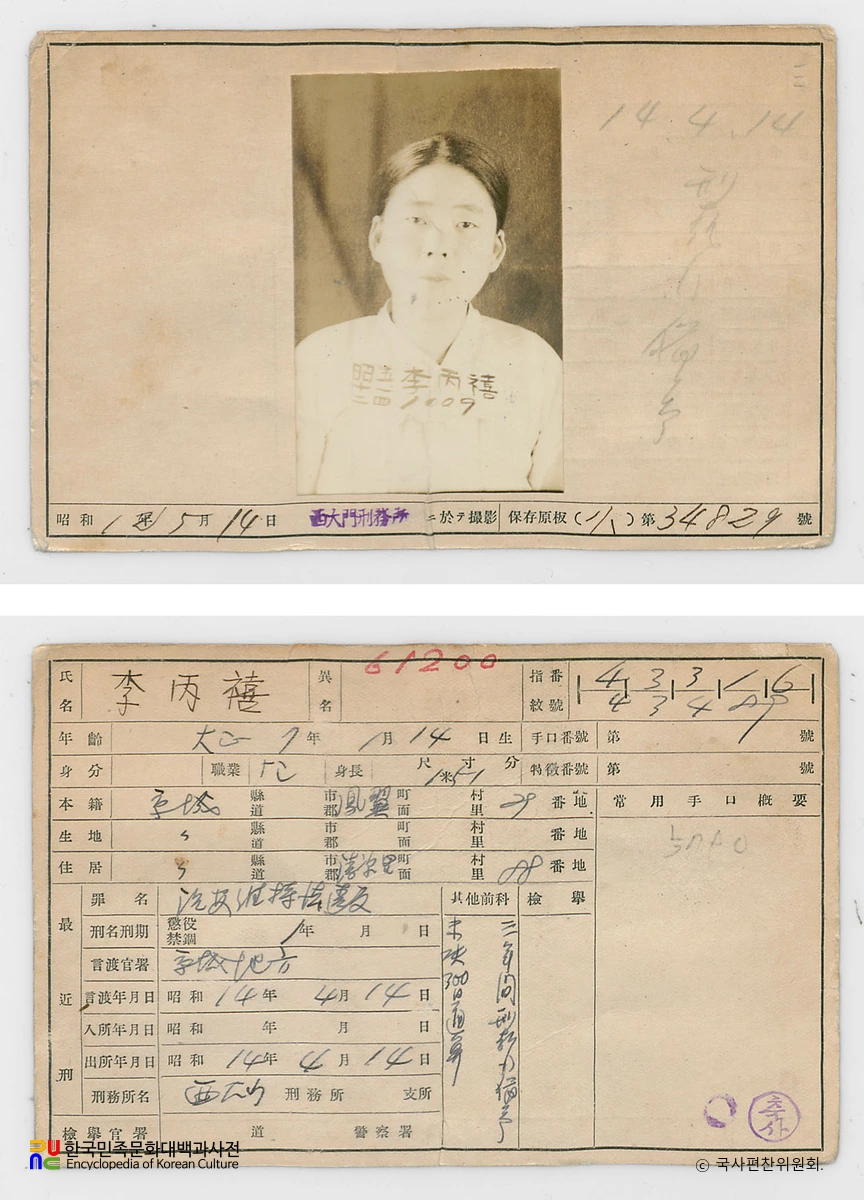 三
14 4.14
刑執行猶予
昭十二 五 四 李丙禧
1009
昭和 12年 5月 14日 西大門刑務所 ニ於テ撮影 保存原板( ) 第34829號
61200
氏名 李丙禧 異名 指紋番號 4 3 3 1 6
4 3 4
年齡 大正7年 1月14日生 手口番號 第 號
身分 職業 身長 尺寸分 1米51 特徴番號 第 號
本籍 京城 縣道 市郡 鳳翼 町面 村里 29番地 常用手口概要
生地 〃 縣道 市郡 町面 村里 番地
住居 〃 縣道 市郡 町面 村里 88番地
最近刑
罪名 治安維持法違反 其他前科 檢擧
刑名刑期 懲役禁錮 1年 月 日
言渡官署 京城地方
言渡年月日 昭和14年 4月14日
入所年月日 昭和 年 月 日
出所年月日 昭和14年 4月14日
刑務所名 西大門 刑務所 支所
檢擧官署 道 警察署
三年間刑執行猶予
未決300日通算
한국민족문화대백과사전
Encyclopedia of Korean Culture
ⓒ 국사편찬위원회.